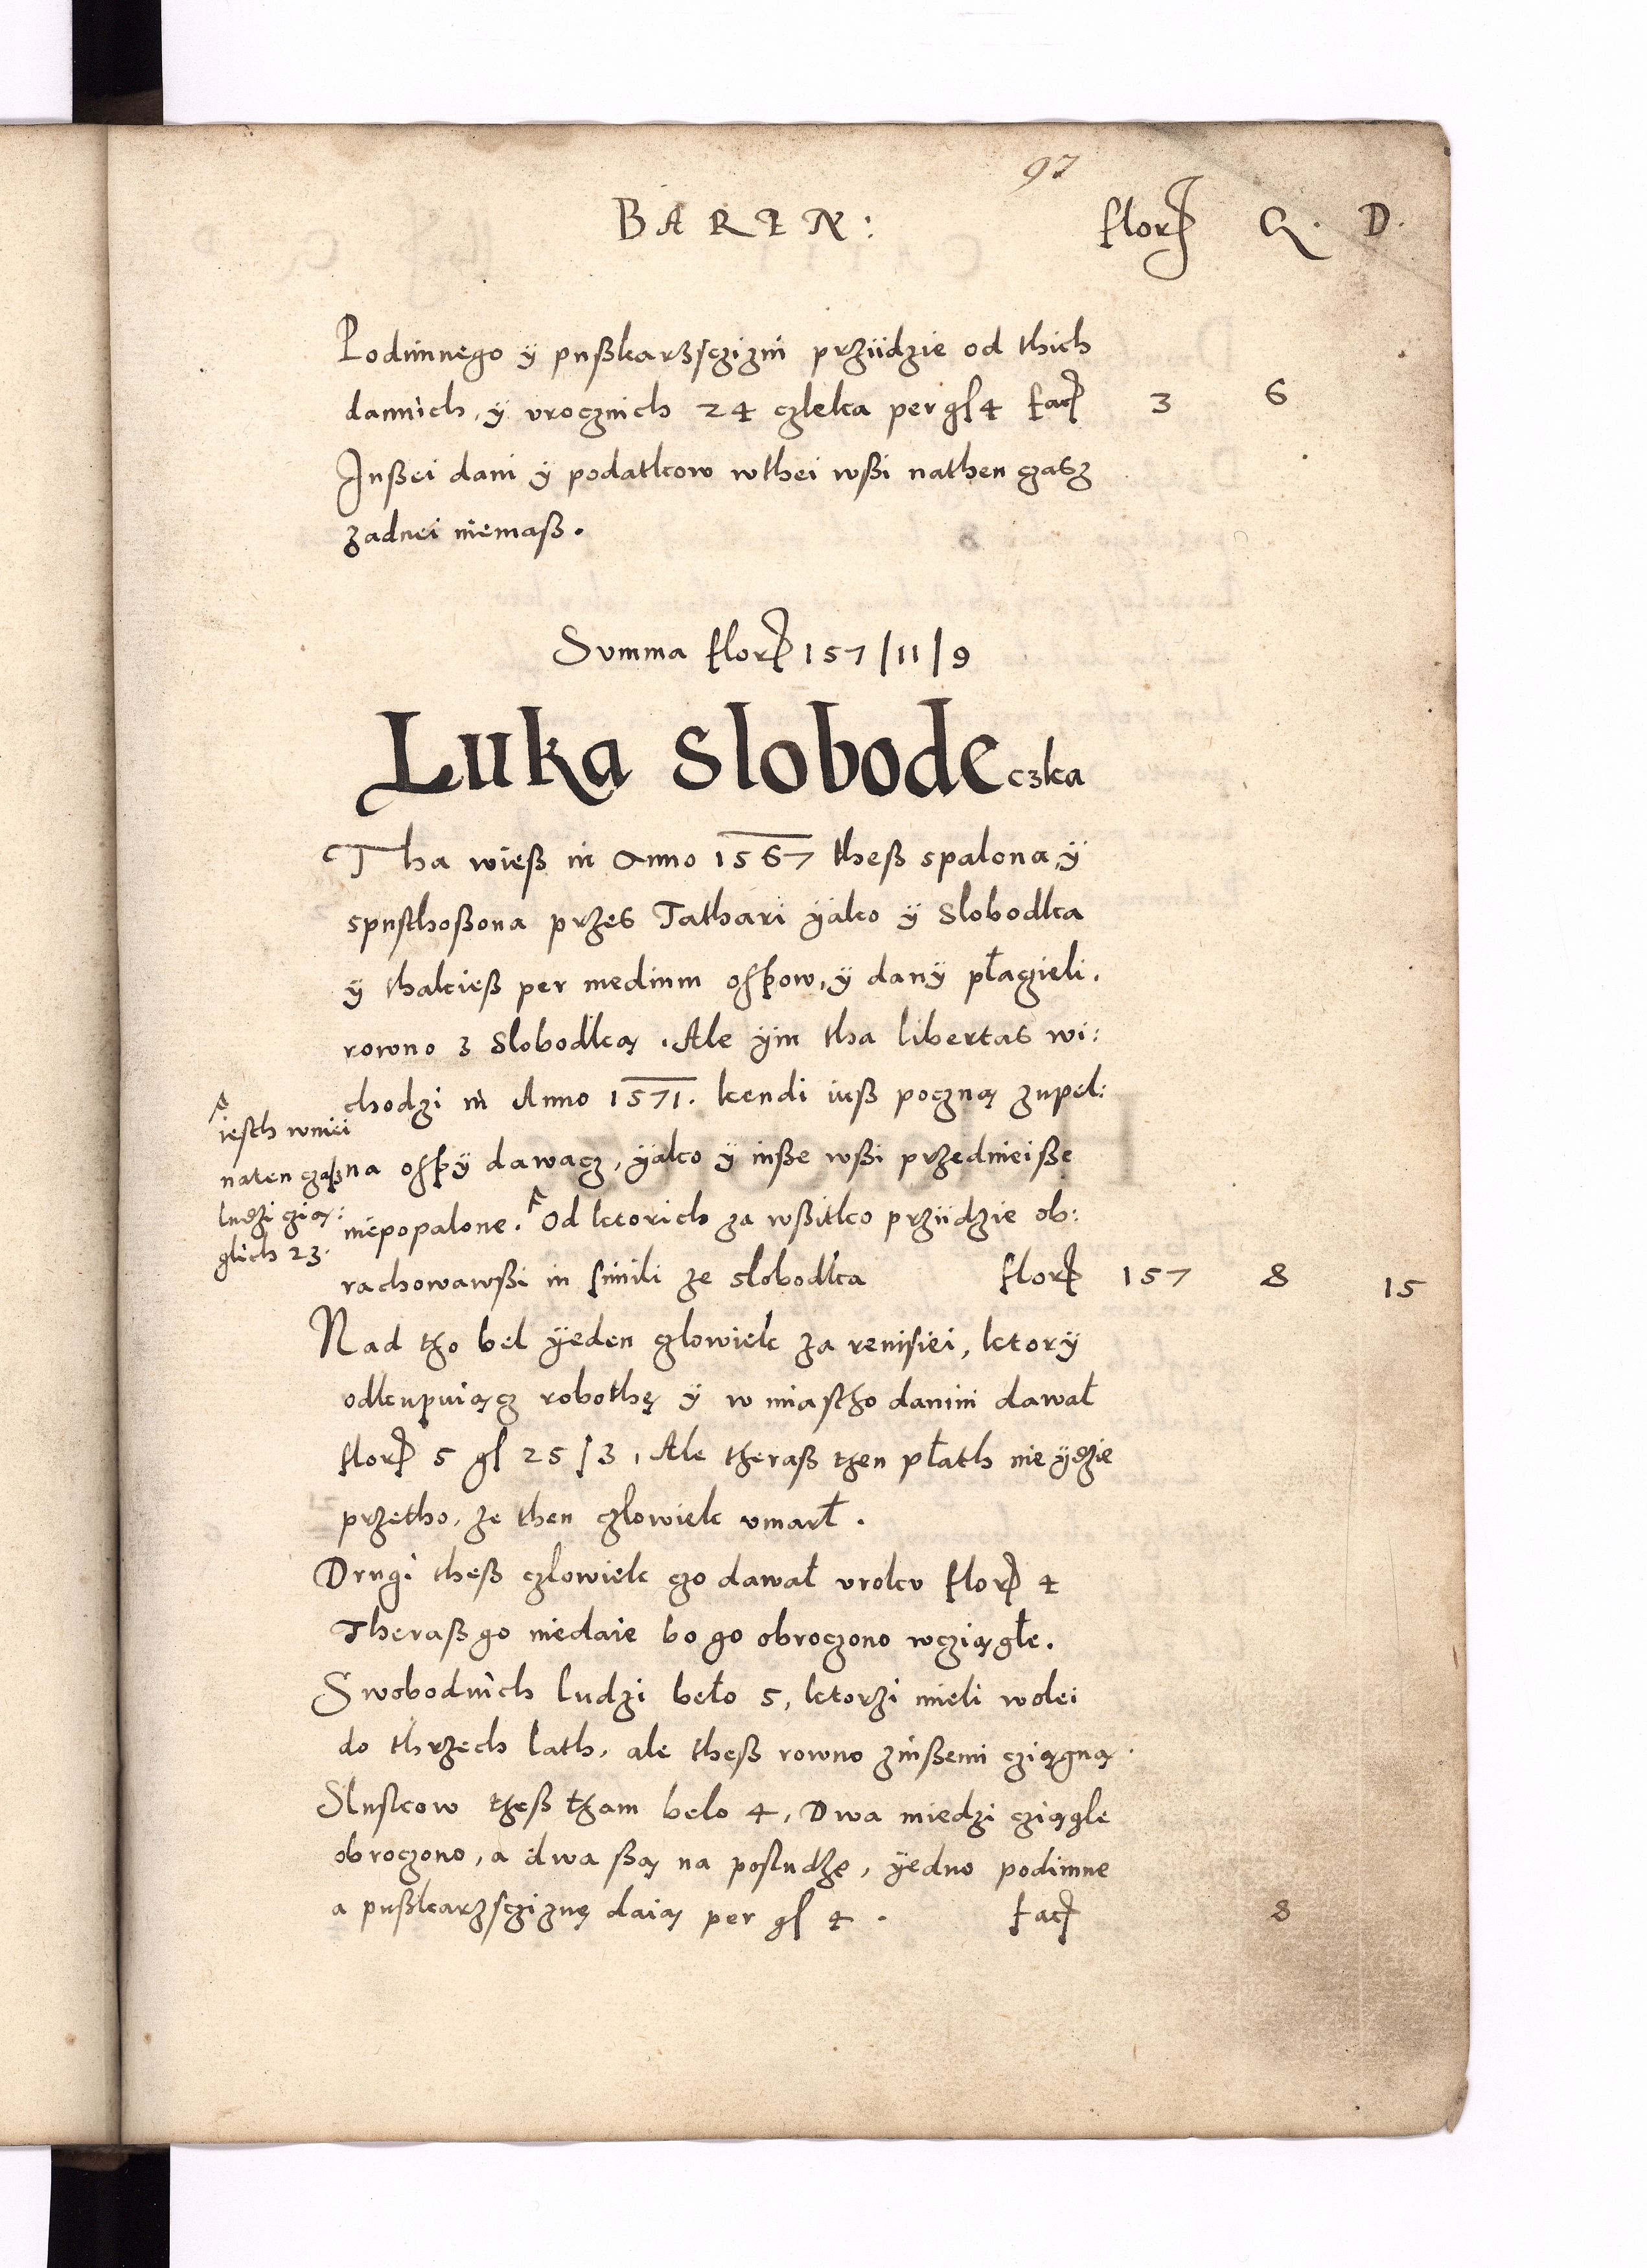 97
BAREN: flor G. D.
Podimnego ÿ pußkarzsczizni prziidzie od thich
dannich, ÿ urocznich 24 czleka per gſ 4 fac 3 6
Inßei dani ÿ podatkow wthei wßi nathen czasz
zadnei niemaß.
Summa flor 157/11/9
Luka Slobodeczka
Tha wieß in Anno 1567 theß spalona, ÿ
spusthoßona przes Tathari ÿako ÿ Slobodka
ÿ thakieß per medium ospow, ÿ danÿ płaczieli.
rowno z Slobodką. Ale ÿm tha libertas wi:
chodzi in Anno 1571. kendi iuß poczną zupel:
na ospÿ dawacz, ÿako ÿ inße wßi przednieiße
niepopalone. ^ Od ktorich za wßitko prziidzie ob:
rachowawßi in simili ze slobodka flor 157 8 15
^ iesth wniei
naten czaß
ludzi czią:
glich 23.
Nad tho bel ÿeden czlowiek za remisiei, ktorÿ
odkupuiącz robothę ÿ w miastho danini dawał
flor 5 gſ 25/3, Ale theraß then płath nie ÿdzie
przetho, ze then czlowiek umarł.
Drugi theß czlowiek czo dawał uroku flor 4
Theraß go niedaie bo go obroczono wcziągłe.
Swobodnich ludzi beło 5, ktorzi mieli wolei
do thrzech lath, ale theß rowno zinßemi cziągną.
Sluskow theß tham belo 4, Dwa miedzi cziągle
obroczono, a dwa ßą na posludze, ÿedno podimne
a pußkarzscziznę daią per gſ 4. fac 8